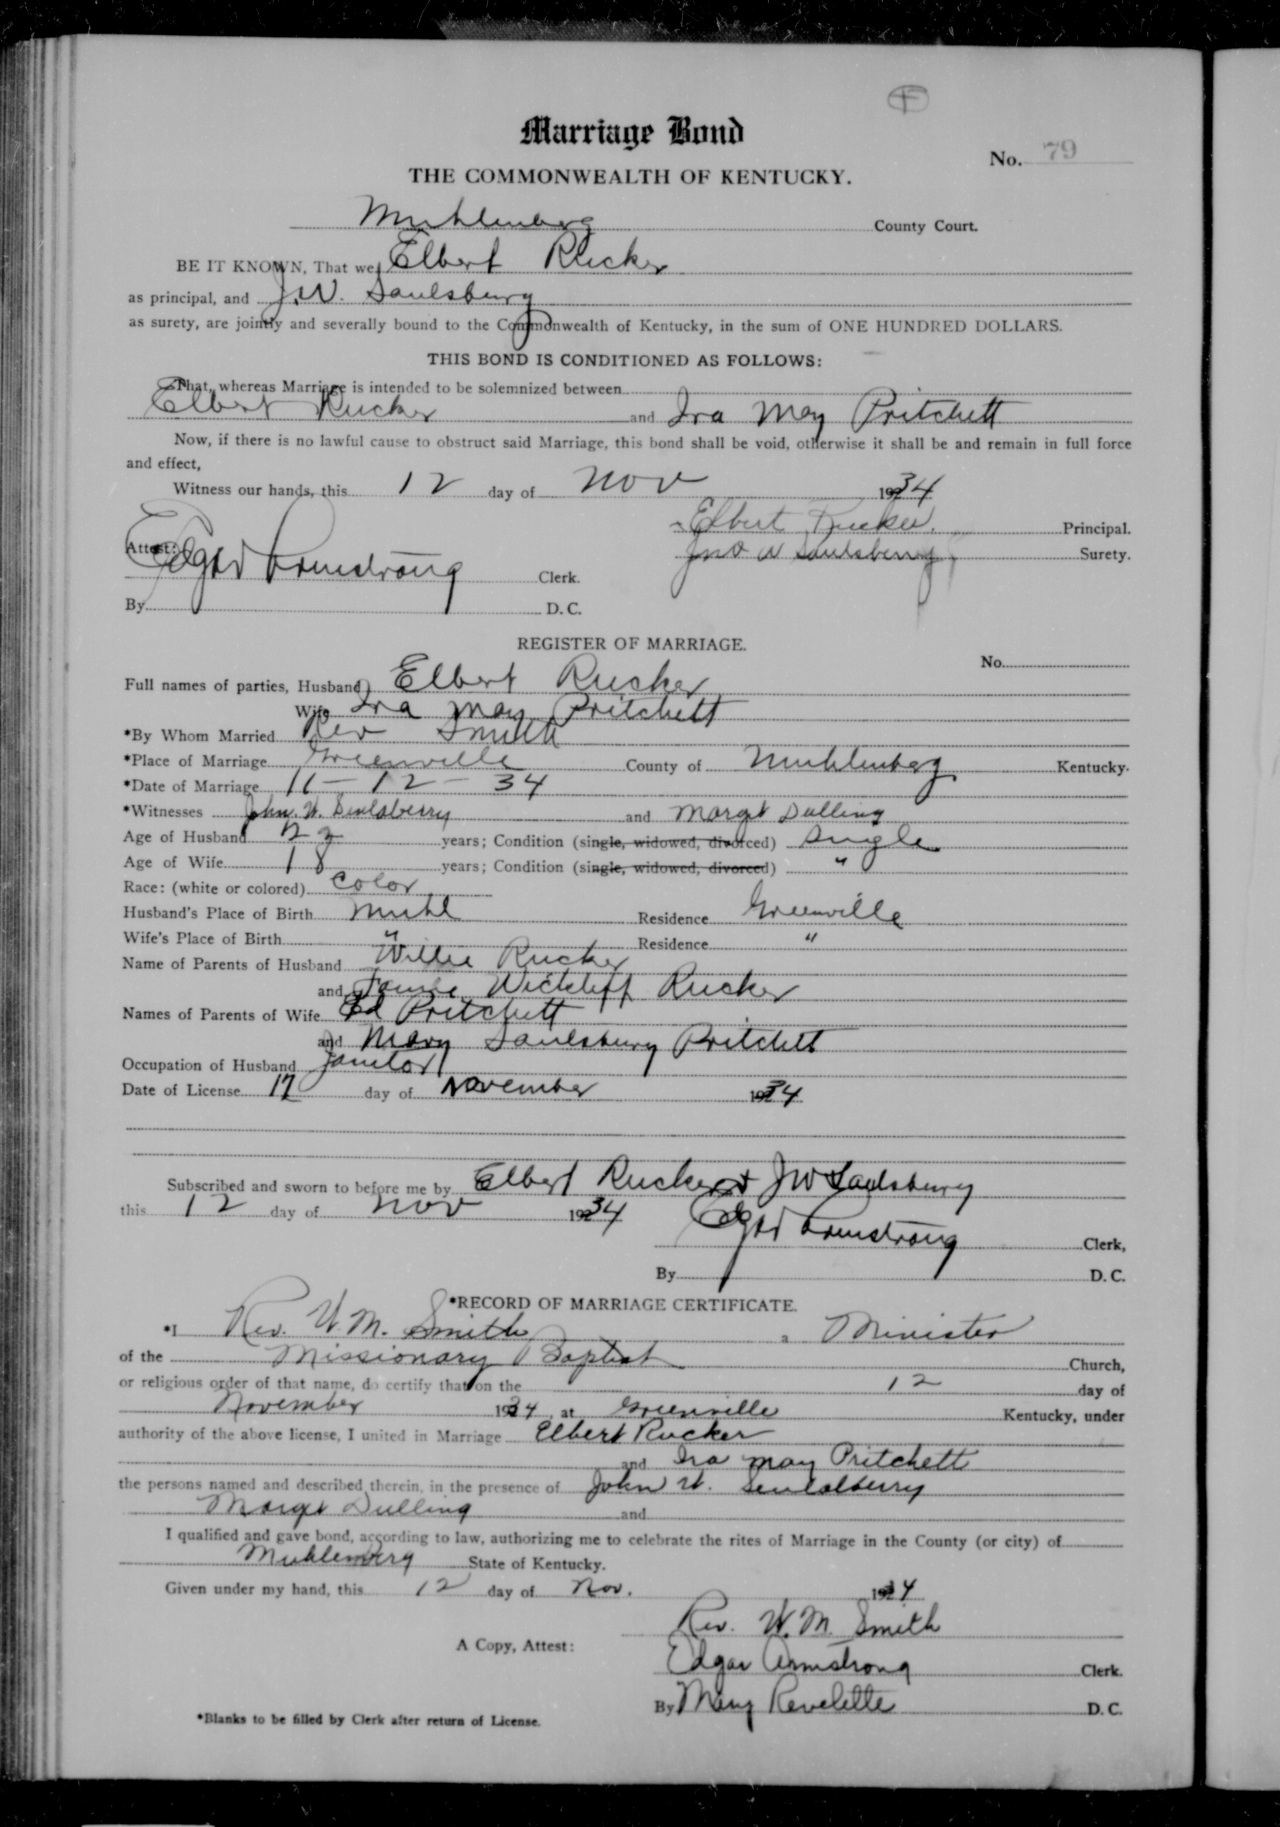 F
Marriage Bond
No. 79
THE COMMONWEALTH OF KENTUCKY.
Muhlenberg County Court.
BE IT KNOWN, That we, Elbert Rucker
as principal, and J.W. Saulsbury
as surety, are jointly and severally bound to the Commonwealth of Kentucky, in the sum of ONE HUNDRED DOLLARS.
THIS BOND IS CONDITIONED AS FOLLOWS:
That, whereas Marriage is intended to be solemnized between
Elbert Rucker and Ira May Pritchett
Now, if there is no lawful cause to obstruct said Marriage, this bond shall be void, otherwise it shall be and remain in full force
and effect,
Witness our hands, this 12 day of Nov 1934
Elbert Rucker. Principal.
Attest: Jno W Saulsberry Surety.
Edgar Armstrong Clerk.
By D. C.
REGISTER OF MARRIAGE.
No.
Full names of parties, Husband Elbert Rucker
Wife Ira May Pritchett
*By Whom Married Rev Smith
*Place of Marriage Greenville County of Muhlenberg Kentucky.
*Date of Marriage 11-12-34
*Witnesses John. W. Saulsberry and Marget Dulling
Age of Husband years; Condition (single, widowed, divorced) Single
Age of Wife 18 years; Condition (single, widowed, divorced) "
Race: (white or colored) Color
Husband's Place of Birth Muhl Residence Greenville
Wife's Place of Birth " Residence "
Name of Parents of Husband Willie Rucker
and Wickliff Rucker
Names of Parents of Wife Ed Pritchett
and Mary Saulsbury Pritchett
Occupation of Husband Janitor
Date of License 12 day of November 1934
Subscribed and sworn to before me by Elbert Rucker & JW Saulsbury
this 12 day of Nov 1934 Edgar Armstrong
Clerk,
By D. C.
*RECORD OF MARRIAGE CERTIFICATE.
*I Rev. W. M. Smith a Minister
of the Missionary Baptist Church,
or religious order of that name, do certify that on the 12 day of
November 1934, at Greenville Kentucky, under
authority of the above license, I united in Marriage Elbert Rucker
and Ira May Pritchett
the persons named and described therein, in the presence of John W.
Marget Dulling and
I qualified and gave bond, according to law, authorizing me to celebrate the rites of Marriage in the County (or city) of
Muhlenberg State of Kentucky.
Given under my hand, this 12 day of Nov. 1934
Rev. W. M. Smith
A Copy, Attest:
Edgar Armstrong Clerk.
By Mary Revelette D. C.
*Blanks to be filled by Clerk after return of License.